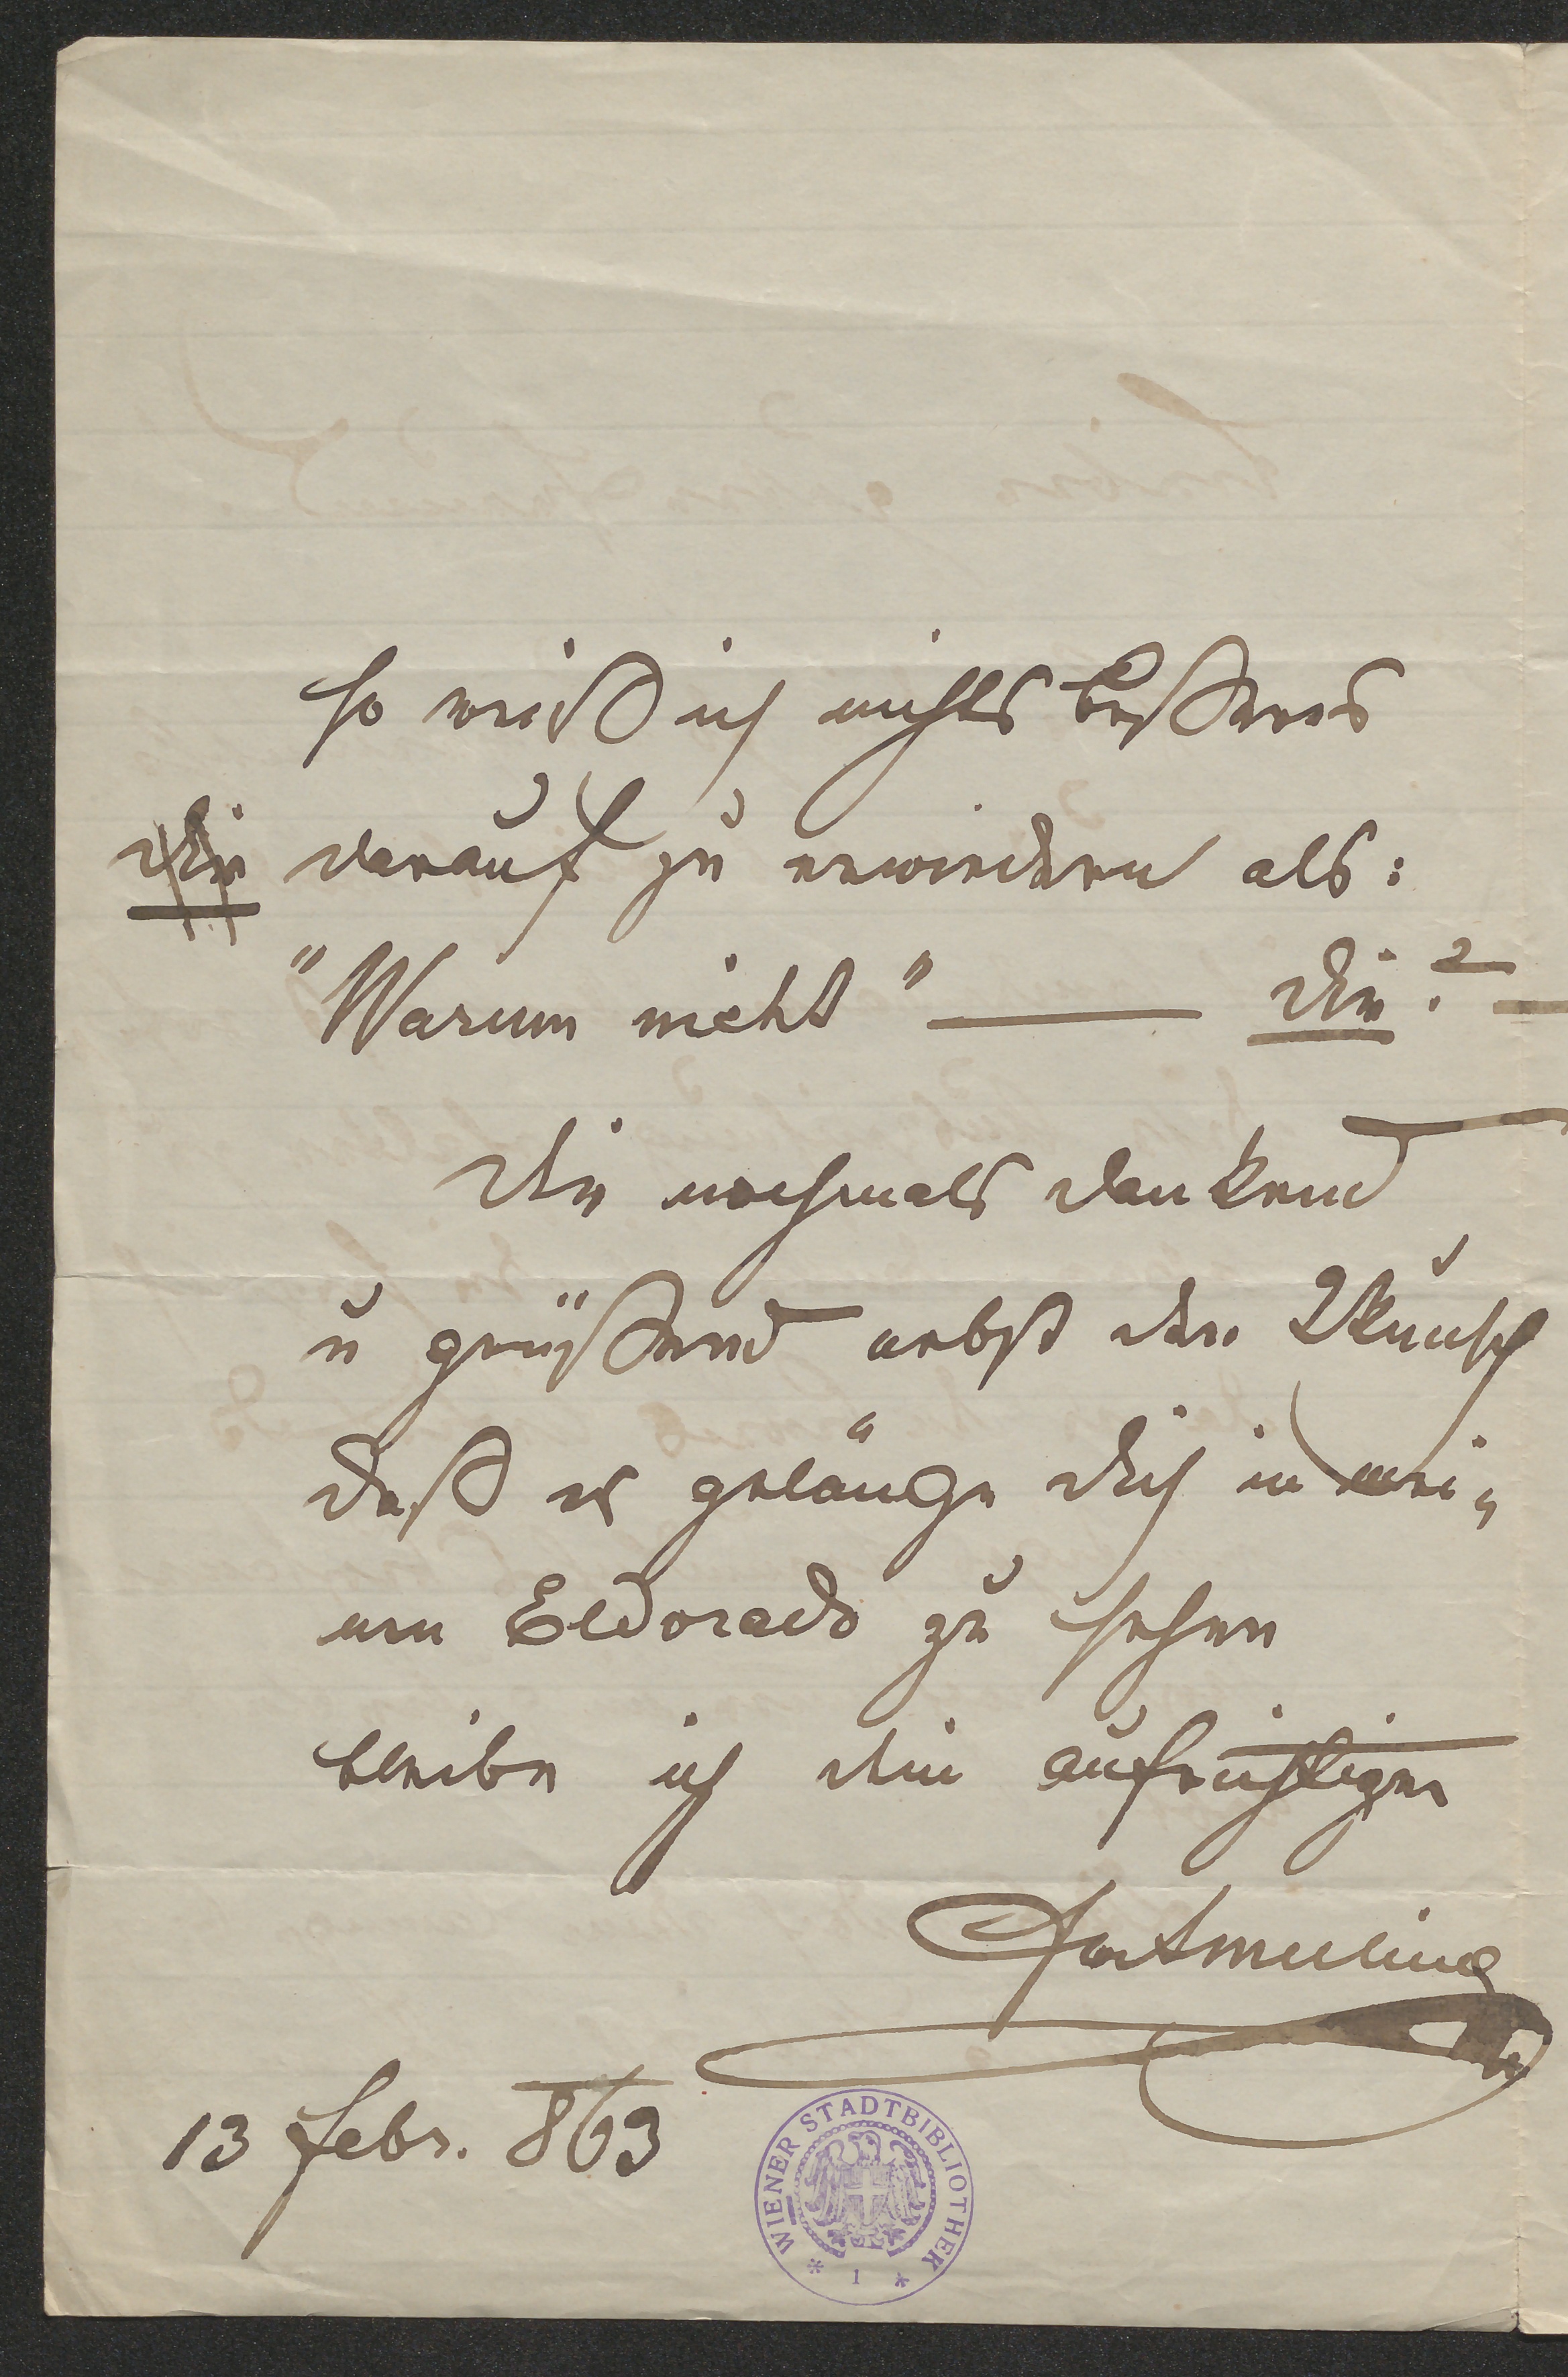 so weiß ich nichts beßeres
darauf zu erwiedern als:
"Warum nicht" — Die? —
Dir nochmals dankend
u grüßend nebst den Wunsch
daß es gelänge dich in mei„
nen Eldorado zu sehen
bleibe ich dein aufrichtiger
FvAmerling
13 Febr. 863
WIENER STADTBIBLIOTHEK
* 1 *